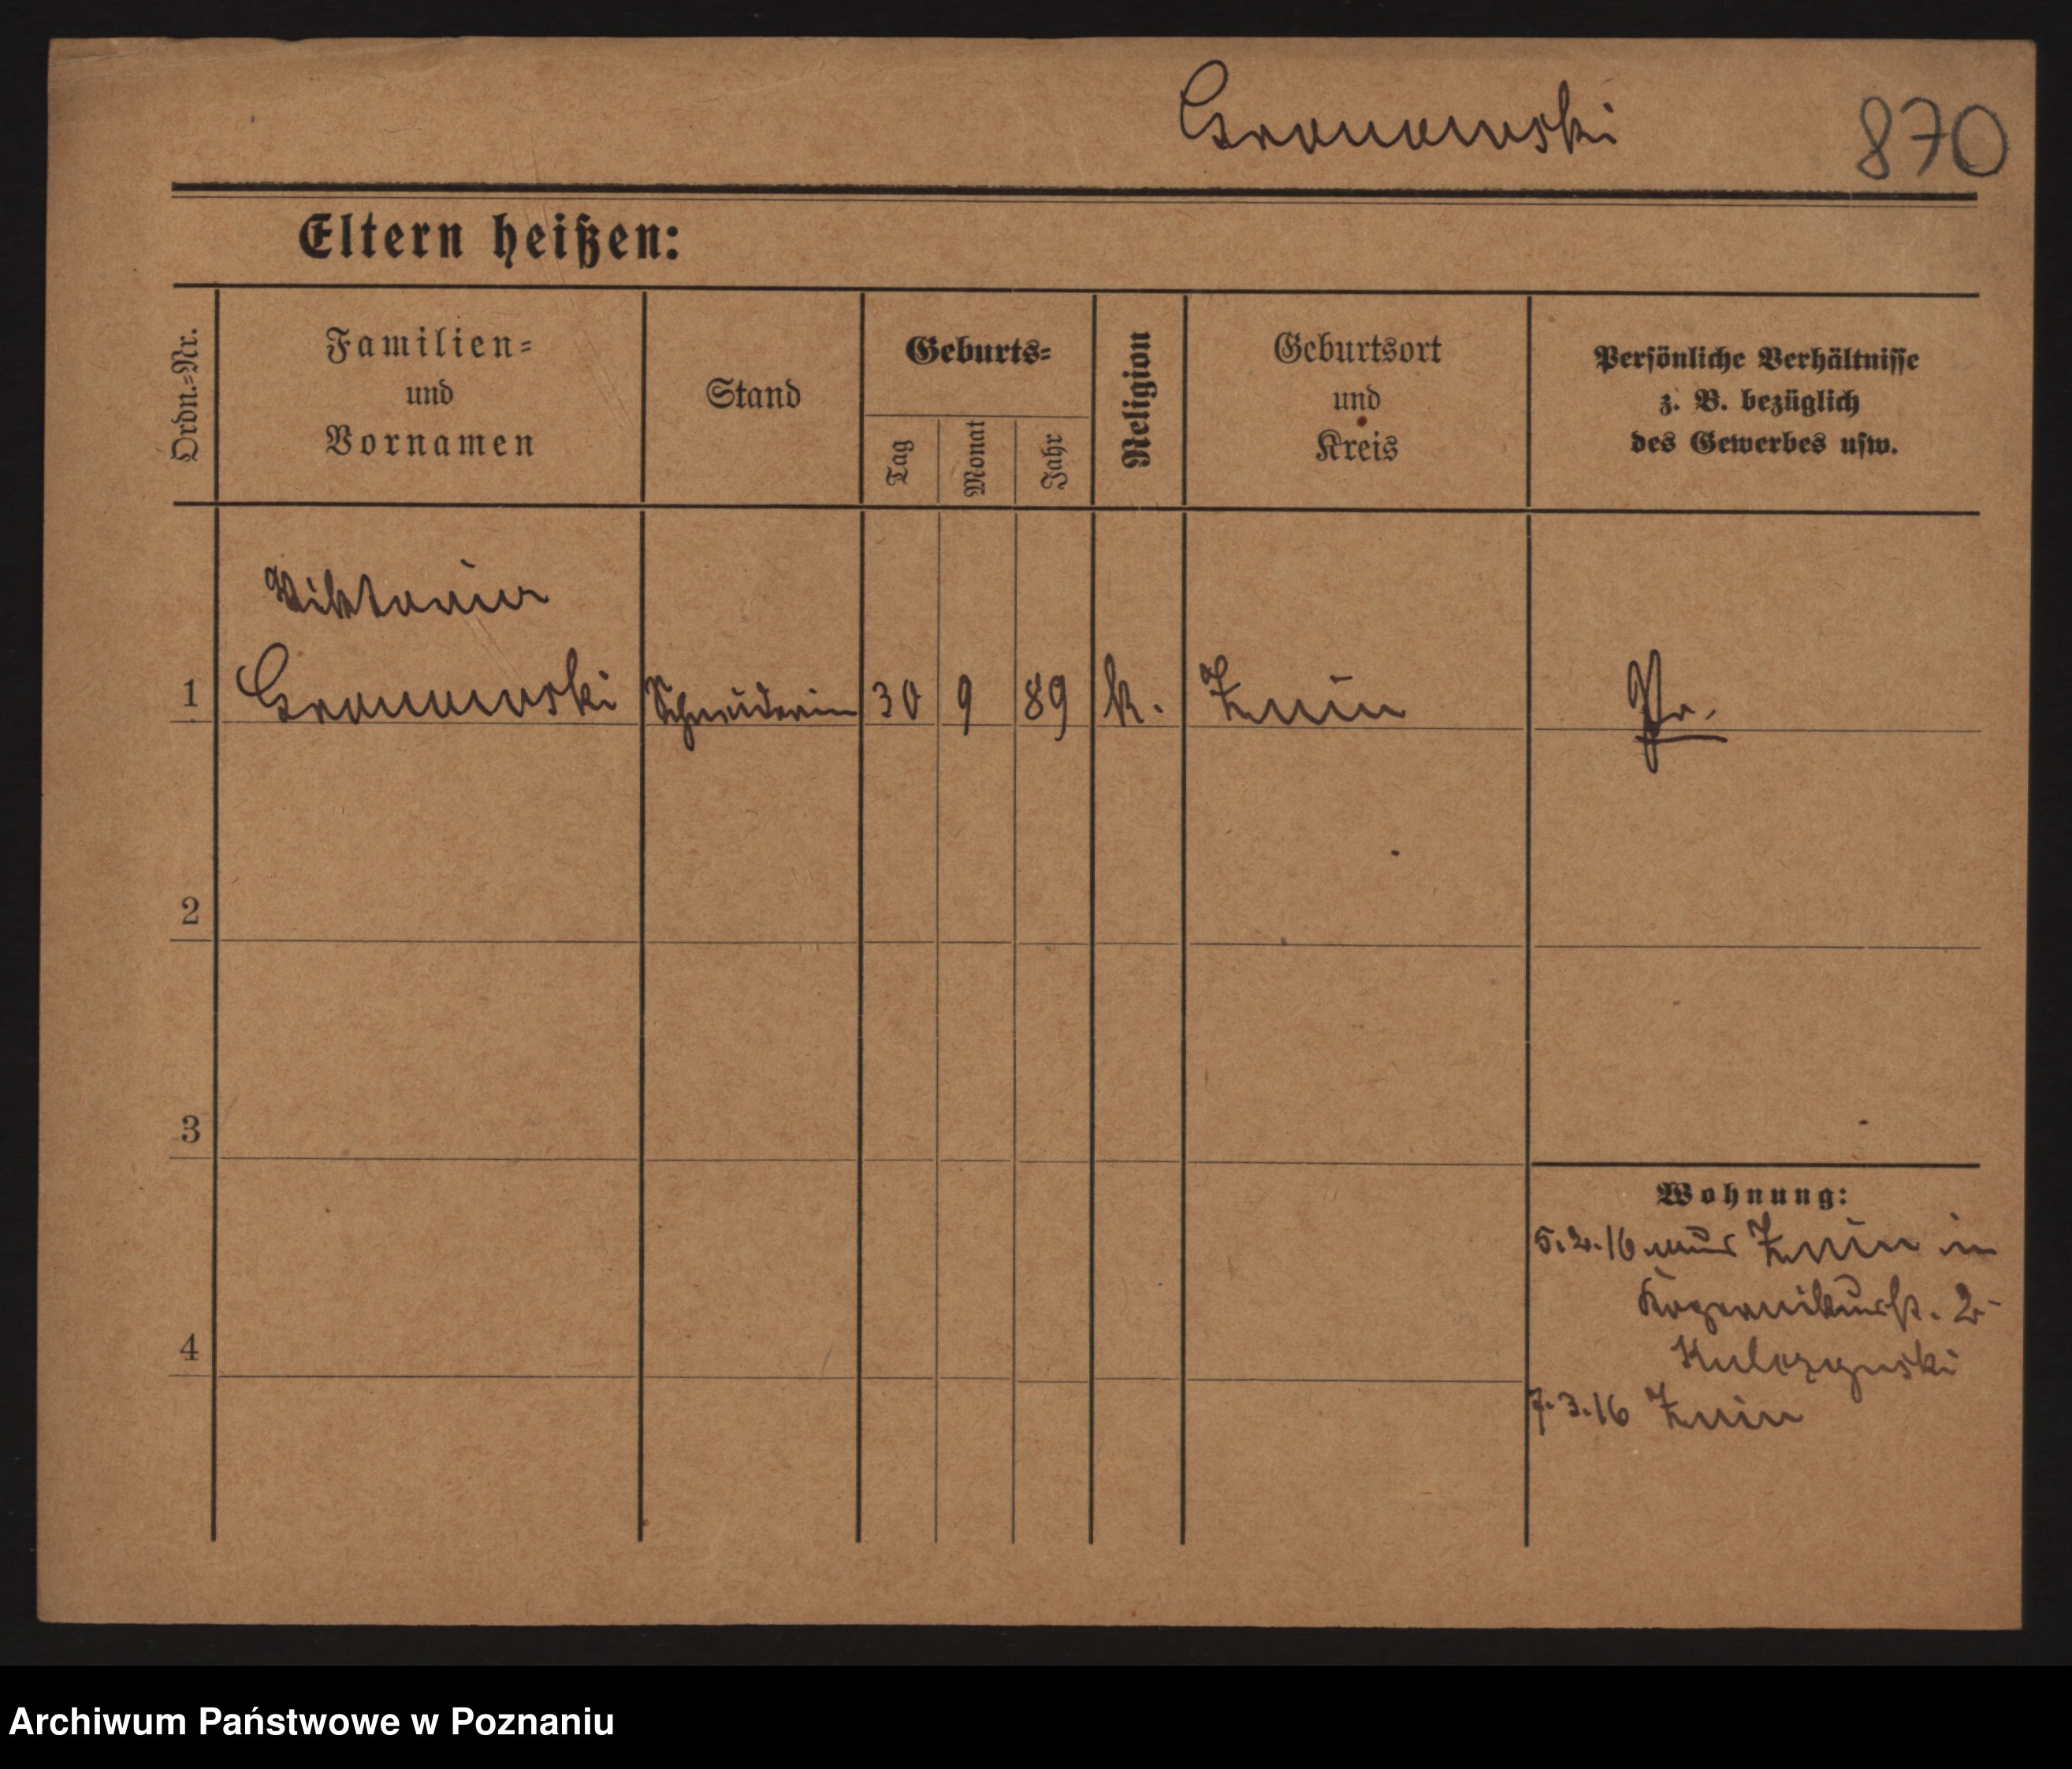 Gronowski
870
Eltern heißen:
Ordn.-Nr.
Familien-
und
Vornamen
Stand
Geburts-
Tag
Monat
Jahr
Religion
Geburtsort
und
Kreis
Persönliche Verhältnisse
z. B. bezüglich
des Gewerbes usw.
Viktoria
1 Gronowski Schneiderin 30 9 89 k. Znin Pr.
2
3
Wohnung:
5.2.16 aus Znin in
Kopernikusstr. 2
4
Kulczynski
7.3.16 Znin
Archiwum Państwowe w Poznaniu